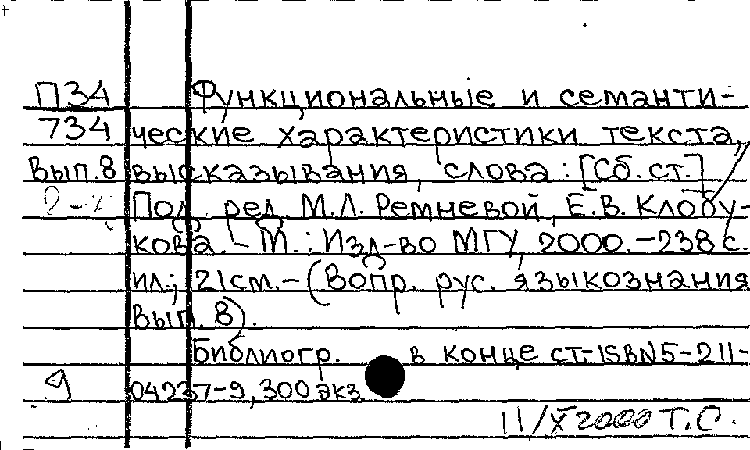 П34 Функциональные и семанти-
734 ческие характеристики текста,
Вып.8 высказывания, слова : [Сб. ст.] /
Под. ред. М.Л. Ремневой, Е.В. Клобу-
кова. - М.: Изд-во МГУ, 2000. - 238 с.
ил.; 21 см. - (Вопр. рус. языкознания
Вып. 8).
Библиогр. в конце ст. - ISBN 5-211-
9 04237-9, 300 экз.
11/X 2000 Т.С.